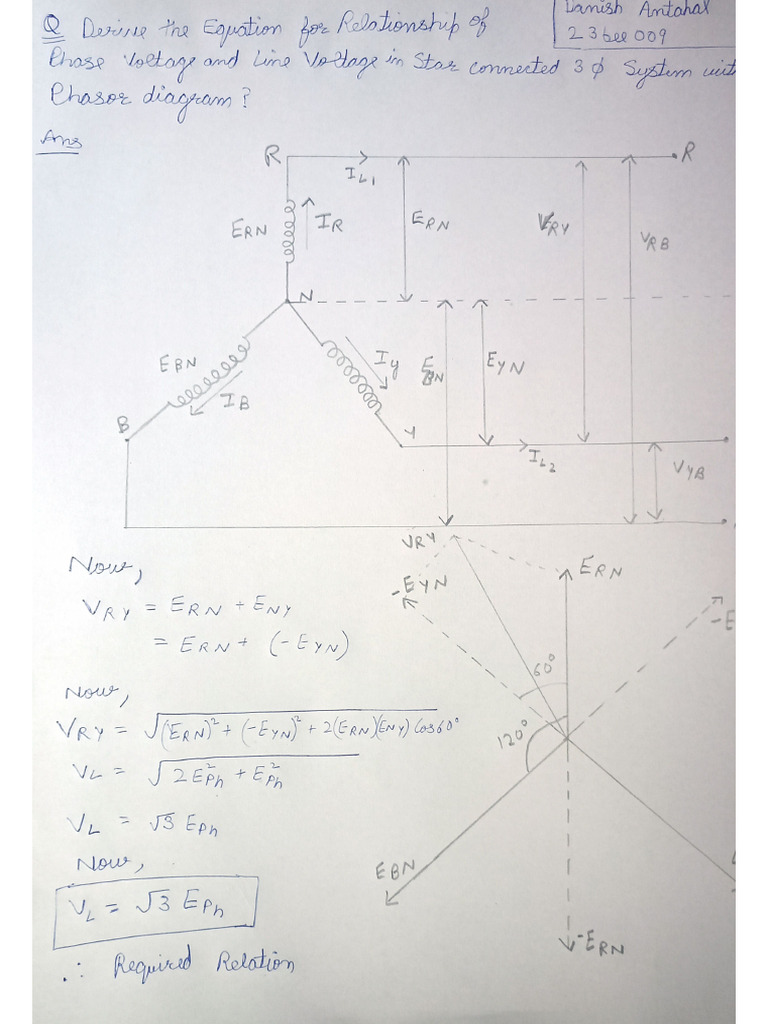 Danish Antahal
23bee009
Q Derive the Equation for Relationship of
Phase Voltage and Line Voltage in Star connected 3φ System with
Phasor diagram?
Ans
R
I_L1
R
E_RN
I_R
E_RN
V_RY
V_RB
N
E_BN
I_B
I_Y
E_BN
E_YN
B
Y
I_L2
V_YB
Now,
V_RY = E_RN + E_NY
= E_RN + (-E_YN)
Now,
V_RY = √(E_RN)² + (-E_YN)² + 2(E_RN)(E_NY) Cos60°
V_L = √2E_Ph² + E_Ph²
V_L = √3 E_Ph
Now,
V_L = √3 E_Ph
∴ Required Relation
V_RY
-E_YN
E_RN
-E
60°
120°
E_BN
-E_RN